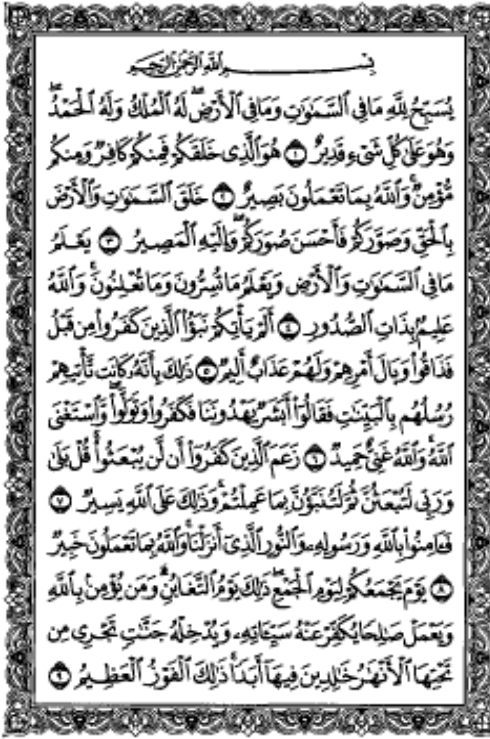 بِسْمِ ٱللَّهِ ٱلرَّحْمَٰنِ ٱلرَّحِيمِ
يُسَبِّحُ لِلَّهِ مَا فِى ٱلسَّمَٰوَٰتِ وَمَا فِى ٱلْأَرْضِ ۖ لَهُ ٱلْمُلْكُ وَلَهُ ٱلْحَمْدُ ۖ
وَهُوَ عَلَىٰ كُلِّ شَىْءٍ قَدِيرٌ ١ هُوَ ٱلَّذِى خَلَقَكُمْ فَمِنكُمْ كَافِرٌ وَمِنكُم
مُّؤْمِنٌ ۚ وَٱللَّهُ بِمَا تَعْمَلُونَ بَصِيرٌ ٢ خَلَقَ ٱلسَّمَٰوَٰتِ وَٱلْأَرْضَ
بِٱلْحَقِّ وَصَوَّرَكُمْ فَأَحْسَنَ صُوَرَكُمْ ۖ وَإِلَيْهِ ٱلْمَصِيرُ ٣ يَعْلَمُ
مَا فِى ٱلسَّمَٰوَٰتِ وَٱلْأَرْضِ وَيَعْلَمُ مَا تُسِرُّونَ وَمَا تُعْلِنُونَ ۚ وَٱللَّهُ
عَلِيمٌۢ بِذَاتِ ٱلصُّدُورِ ٤ أَلَمْ يَأْتِكُمْ نَبَؤُا۟ ٱلَّذِينَ كَفَرُوا۟ مِن قَبْلُ
فَذَاقُوا۟ وَبَالَ أَمْرِهِمْ وَلَهُمْ عَذَابٌ أَلِيمٌ ٥ ذَٰلِكَ بِأَنَّهُۥ كَانَت تَّأْتِيهِمْ
رُسُلُهُم بِٱلْبَيِّنَٰتِ فَقَالُوٓا۟ أَبَشَرٌ يَهْدُونَنَا فَكَفَرُوا۟ وَتَوَلَّوا۟ ۚ وَّٱسْتَغْنَى
ٱللَّهُ ۚ وَٱللَّهُ غَنِىٌّ حَمِيدٌ ٦ زَعَمَ ٱلَّذِينَ كَفَرُوٓا۟ أَن لَّن يُبْعَثُوا۟ ۚ قُلْ بَلَىٰ
وَرَبِّى لَتُبْعَثُنَّ ثُمَّ لَتُنَبَّؤُنَّ بِمَا عَمِلْتُمْ ۚ وَذَٰلِكَ عَلَى ٱللَّهِ يَسِيرٌ ٧
فَـَٔامِنُوا۟ بِٱللَّهِ وَرَسُولِهِۦ وَٱلنُّورِ ٱلَّذِىٓ أَنزَلْنَا ۚ وَٱللَّهُ بِمَا تَعْمَلُونَ خَبِيرٌ
٨ يَوْمَ يَجْمَعُكُمْ لِيَوْمِ ٱلْجَمْعِ ۖ ذَٰلِكَ يَوْمُ ٱلتَّغَابُنِ ۗ وَمَن يُؤْمِنۢ بِٱللَّهِ
وَيَعْمَلْ صَٰلِحًا يُكَفِّرْ عَنْهُ سَيِّـَٔاتِهِۦ وَيُدْخِلْهُ جَنَّٰتٍ تَجْرِى مِن
تَحْتِهَا ٱلْأَنْهَٰرُ خَٰلِدِينَ فِيهَآ أَبَدًا ۚ ذَٰلِكَ ٱلْفَوْزُ ٱلْعَظِيمُ ٩